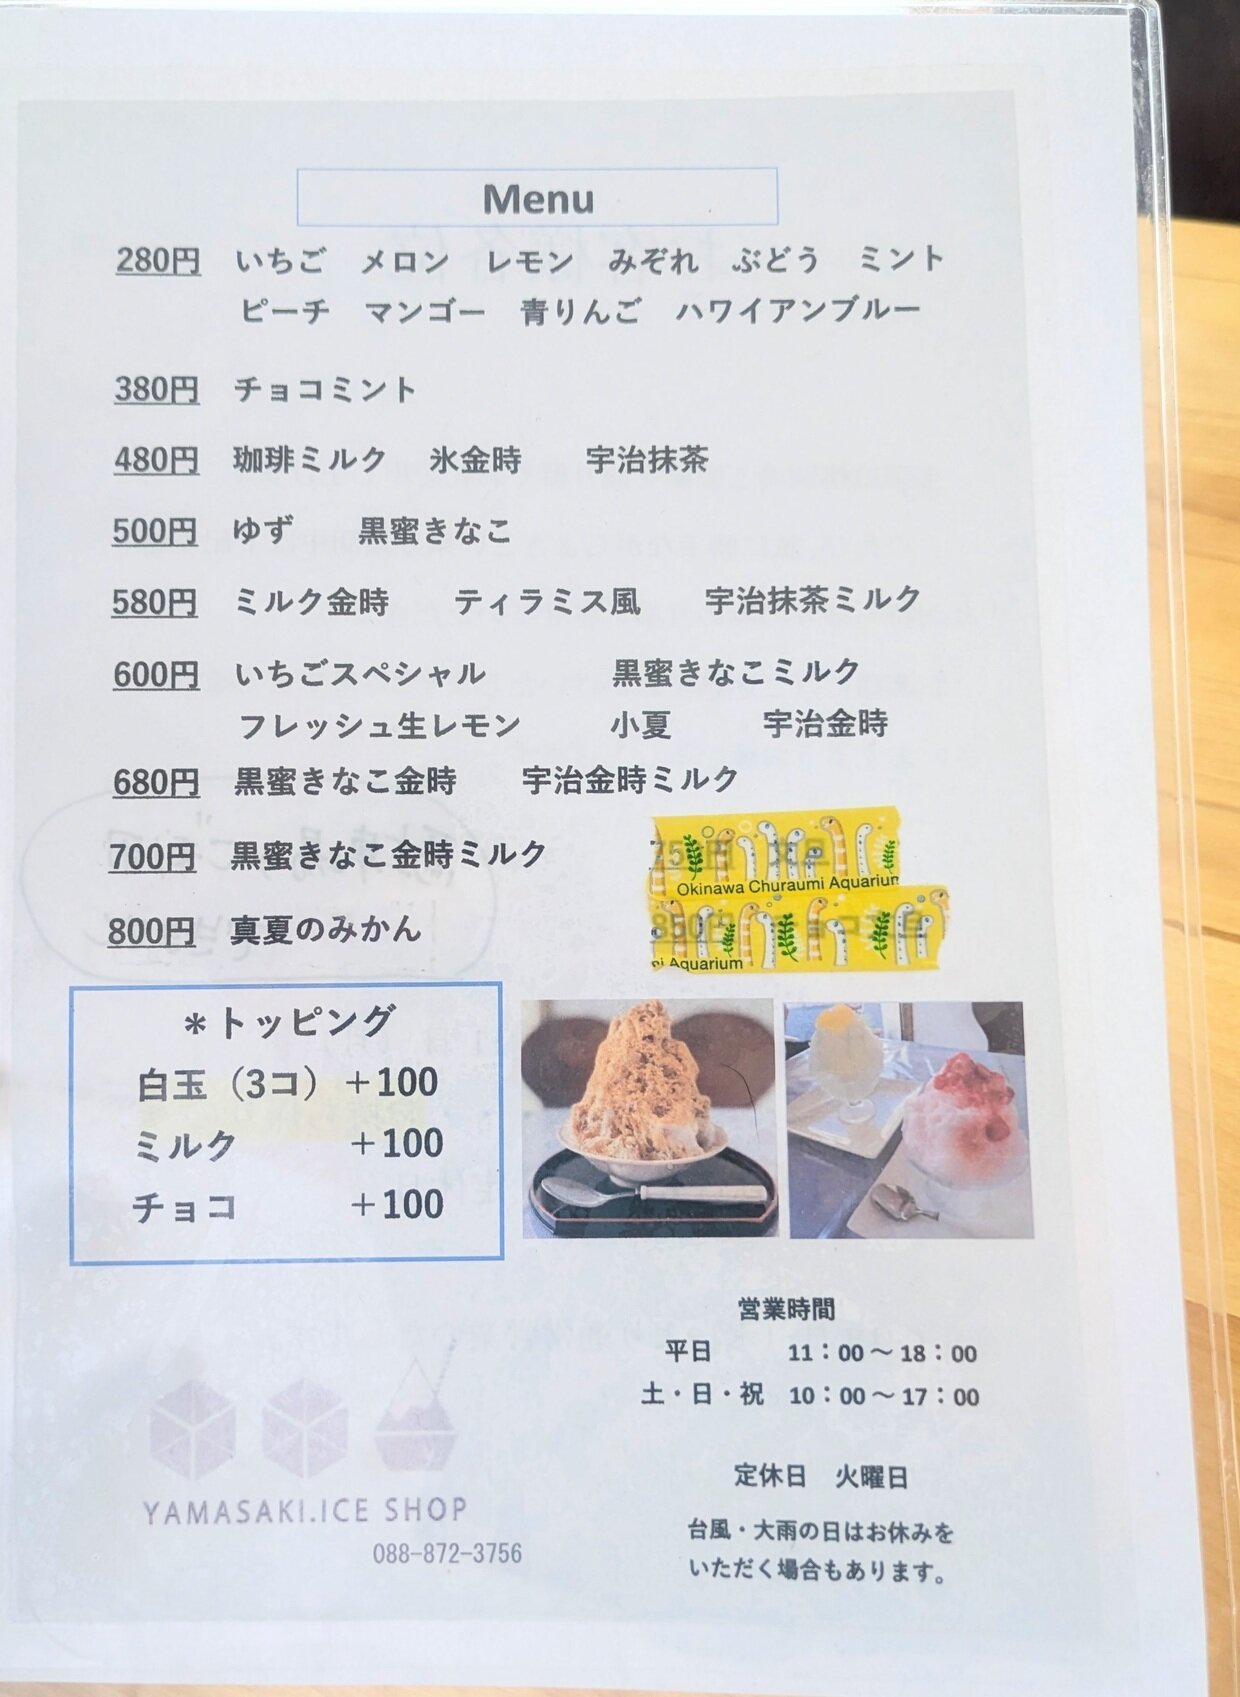 Menu
280円 いちご メロン レモン みぞれ ぶどう ミント
ピーチ マンゴー 青りんご ハワイアンブルー
380円 チョコミント
480円 珈琲ミルク 氷金時 宇治抹茶
500円 ゆず 黒蜜きなこ
580円 ミルク金時 ティラミス風 宇治抹茶ミルク
600円 いちごスペシャル 黒蜜きなこミルク
フレッシュ生レモン 小夏 宇治金時
680円 黒蜜きなこ金時 宇治金時ミルク
700円 黒蜜きなこ金時ミルク
Okinawa Churaumi Aquarium
800円 真夏のみかん
850円
Aquarium
＊トッピング
白玉（3コ）＋100
ミルク ＋100
チョコ ＋100
営業時間
平日 11：00～18：00
土・日・祝 10：00～17：00
定休日 火曜日
台風・大雨の日はお休みを
いただく場合もあります。
YAMASAKI.ICE SHOP
088-872-3756